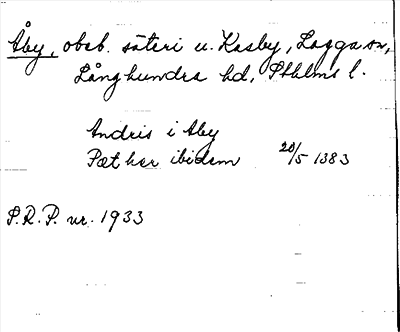 Åby, obeb. säteri u. Kasby, Lagga sn,
Långhundra hd, Sthlms l.
Andris i Aby
Pæthar ibidem 20/5 1383
S.R.P. nr. 1933